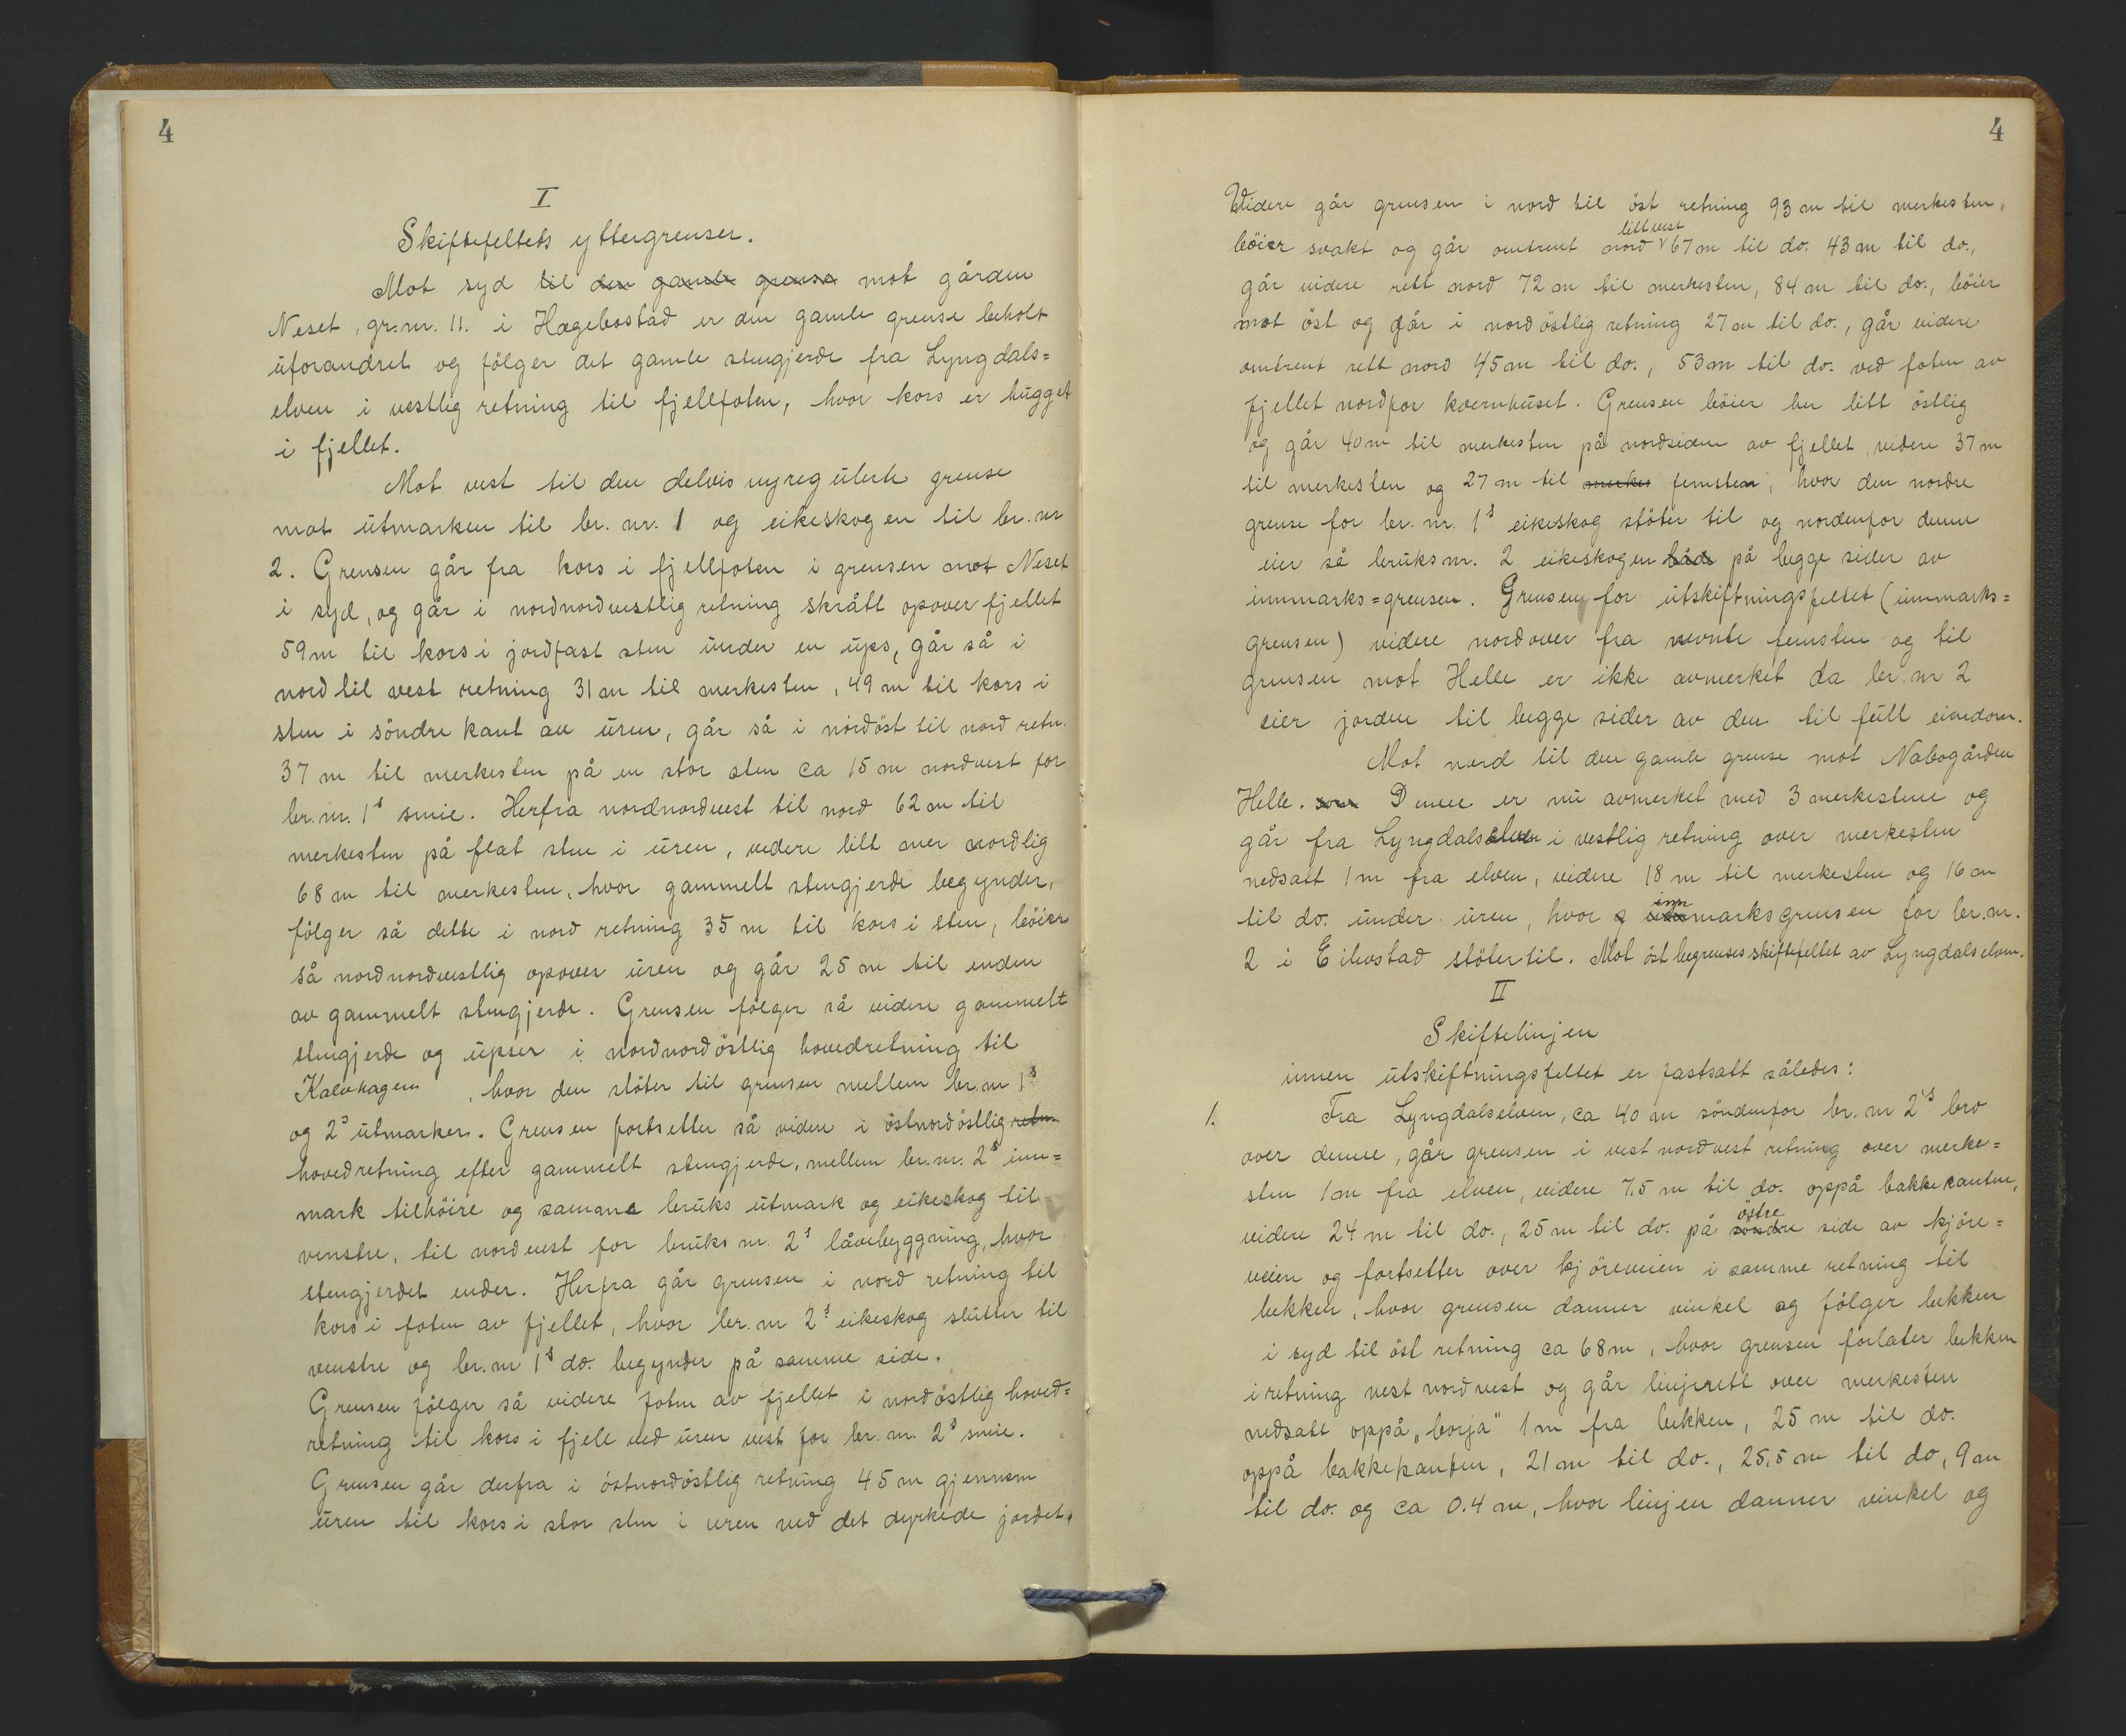 4
I
Skiftefeltets yttergrenser.
Mot syd til den gamle grense mot gården
Neset, gr.nr. 11. i Hægebostad er den gamle grense beholt
uforandret og fölger det gamle stengjerde fra Lyngdals=
elven i vestlig retning til fjellfoten, hvor kors er hugget
i fjellet.
Mot vest til den delvis nyregulerte grense
mot utmarken til br. nr. 1 og eikeskogen til br. nr
2. Grensen går fra kors i fjellfoten i grensen mot Neset
i syd, og går i nordnordvestlig retning skrått opover fjellet
59 m til kors i jordfast sten under en ups, går så i
nord til vest retning 31 m til merkesten, 49 m til kors i
sten i söndre kant av uren, går så i nordöst til nord retn.
37 m til merkesten på en stor sten ca 15 m nordvest for
br. nr. 1s smie. Herfra nordnordvest til nord 62 m til
merkesten på flat sten i uren, videre litt mer nordlig
68 m til merkesten, hvor gammelt stengjerde begynder,
fölger så dette i nord retning 35 m til kors i sten, böier
så nordnordvestlig opover uren og går 25 m til enden
av gammelt stengjerde. Grensen fölger så videre gammelt
stengjerde og upser i nordnordöstlig hovedretning til
Kalvhagen, hvor den stöter til grensen mellem br. nr 1s
og 2s utmarker. Grensen fortsetter så videre i östnordöstlig retn.
hovedretning efter gammelt stengjerde, mellem br. nr. 2s inn=
mark tilhöire og samme bruks utmark og eikeskog til
venstre, til nordvest for bruks nr. 2s låvebyggning, hvor
stengjerdet ender. Herfra går grensen i nord retning til
kors i foten av fjellet, hvor br. nr 2s eikeskog slutter til
venstre og br. nr 1s do. begynder på samme side.
Grensen fölger så videre foten av fjellet i nordöstlig hoved=
retning til kors i fjell ved uren vest for br. nr. 2s smie.
Grensen går derfra i östnordöstlig retning 45 m gjennem
uren til kors i stor sten i uren ved det dyrkede jordet.
4
Videre går grensen i nord til öst retning 93 m til merkesten,
litt vest
böier svakt og går omtrent nord 67 m til do. 43 m til do.,
går videre rett nord 72 m til merkesten, 84 m til do., böier
mot öst og går i nordöstlig retning 27 m til do., går videre
omtrent rett nord 45 m til do., 53 m til do. ved foten av
fjellet nordfor kvernhuset. Grensen böier her litt östlig
og går 40 m til merkesten på nordsiden av fjellet, videre 37 m
til merkesten og 27 m til merkes femsten, hvor den nordre
grense for br. nr. 1s eikeskog stöter til og nordenfor denne
eier så bruksnr. 2 eikeskogen både på begge sider av
innmarks=grensen. Grensen for utskiftningsfeltet (innmarks=
grensen) videre nordover fra nevnte femsten og til
grensen mot Helle er ikke avmerket da br. nr 2
eier jorden til begge sider av den til full eiendom.
Mot nord til den gamle grense mot Nabogården
Helle. som Denne er nu avmerket med 3 merkestene og
går fra Lyngdalselven i vestlig retning over merkesten
nedsatt 1 m fra elven, videre 18 m til merkesten og 16 m
inn
til do. under uren, hvor marksgrensen for br. nr.
2 i Eilevstad stöter til. Mot öst begrenses skiftefeltet av Lyngdalselven.
II
Skiftelinjen
innen utskiftningsfeltet er fastsatt således:
1. Fra Lyngdalselven, ca 40 m söndenfor br. nr 2's bro
over denne, går grensen i vest nordvest retning over merke=
sten 1 m fra elven, videre 7.5 m til do. oppå bakkekanten,
östre
videre 24 m til do., 25 m til do. på söndre side av kjöre=
veien og fortsetter over kjöreveien i samme retning til
bekken, hvor grensen danner vinkel og fölger bekken
i syd til öst retning ca 68 m, hvor grensen forlater bekken
i retning vest nordvest og går linjerett over merkesten
nedsatt oppå „borja" 1 m fra bekken, 25 m til do.
oppå bakkekanten, 21 m til do., 25.5 m til do, 9 m
til do. og ca 0.4 m, hvor linjen danner vinkel og